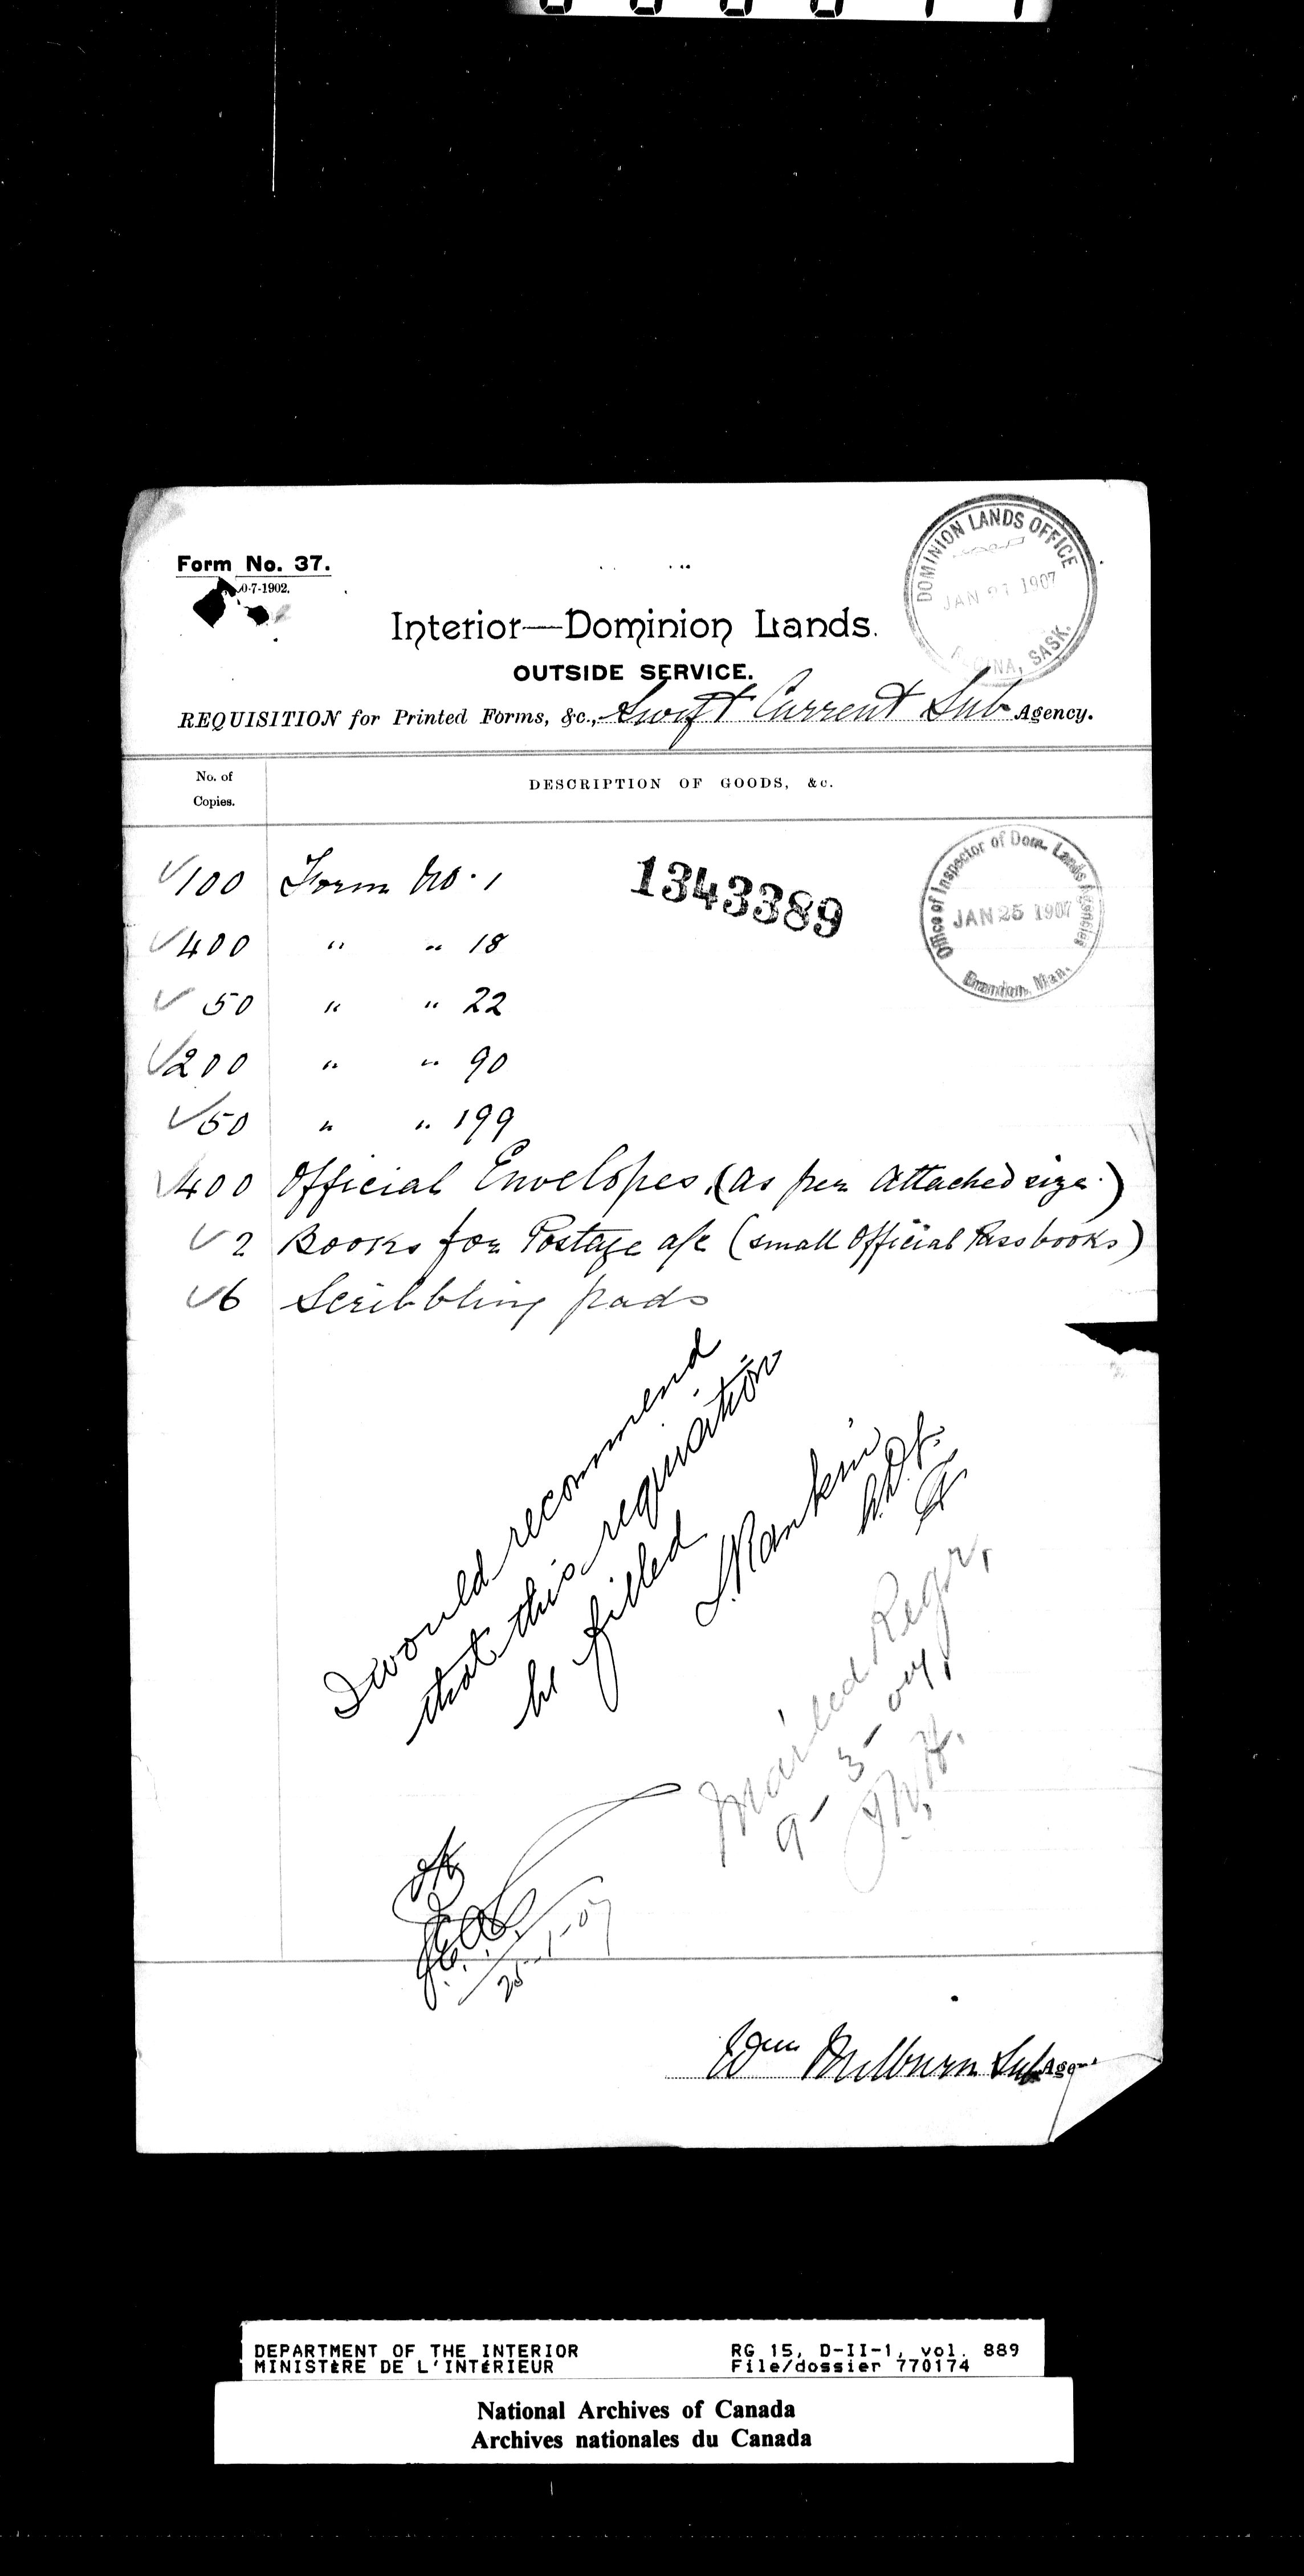 Form No. 37.
0-7-1902.
DOMINION LANDS OFFICE
JAN 1907
REGINA, SASK.
Interior—Dominion Lands.
OUTSIDE SERVICE.
REQUISITION for Printed Forms, &c., Swift Current Sub Agency.
No. of Copies.
DESCRIPTION OF GOODS, &c.
1343389
Office of Inspector of Dom. Lands Agencies
JAN 25 1907
Brandon, Man.
√100 Form No. 1
√400 " " 18
√ 50 " " 22
√200 " " 90
√50 " " 199
√400 Official Envelopes, (as per Attached size.)
√ 2 Books for Postage a/c (small Official Passbooks)
√6 Scribbling pads
I would recommend
that this requisition
be filled
J. Rankin
Mailed Regr,
9-3-07,
OK
25-1-07
Wm Milburn Sub Agent
DEPARTMENT OF THE INTERIOR RG 15, D-II-1, vol. 889
MINISTÈRE DE L'INTÉRIEUR File/dossier 770174
National Archives of Canada
Archives nationales du Canada